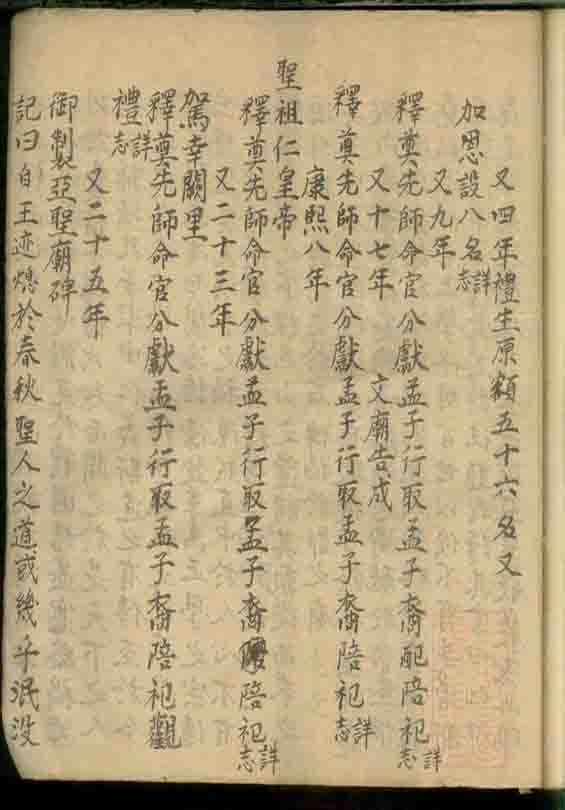 又四年禮生原額五十六名又
加恩設八名詳志
又九年
釋奠先師命官分獻孟子行取孟子裔配祀詳志
又十七年 文廟告成
釋奠先師命官分獻孟子行取孟子裔陪祀詳志
康熙八年
聖祖仁皇帝
釋奠先師命官分獻孟子行取孟子裔陪祀詳志
又二十三年
駕幸闕里
釋奠先師命官分獻孟子行取孟子裔陪祀觀
禮詳志
又二十五年
御製亞聖廟碑
記曰自王迹熄於春秋聖人之道或幾乎泯沒